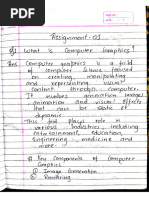 Assignment-01
Q1 What is Computer Graphics?
Ans Computer graphics is a field
of computer science focused
on creating, manipulating
and representing visual
content through computer.
It involves generation images
animation and visual effects
that can be static or
dynamic.
This field plays role in
various industries including
entertainment, education,
Engineering, medicine and
more.
Key Components of Computer
Graphics
① Image Generation
② Rendering